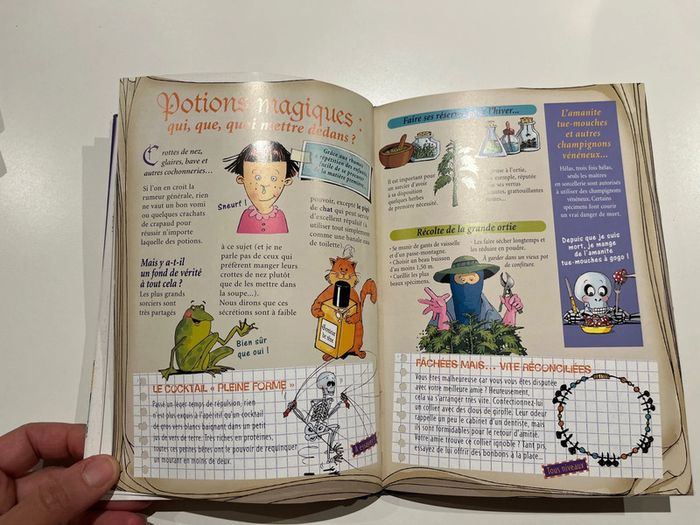 Potions magiques :
qui, que, quoi mettre dedans ?
Crottes de nez,
glaires, bave et
autres cochonneries...
Si l'on en croit la
rumeur générale, rien
ne vaut un bon vomi
ou quelques crachats
de crapaud pour
réussir n'importe
laquelle des potions.
Mais y a-t-il
un fond de vérité
à tout cela ?
Les plus grands
sorciers sont très
partagés
Sneurf !
Grâce aux rhumes
à répétition des enfants,
facile de se procurer
de la matière première
à ce sujet (et je ne
parle pas de ceux qui
préfèrent manger leurs
crottes de nez plutôt
que de les mettre dans
la soupe...).
Nous dirons que ces
sécrétions sont à faible
pouvoir, excepté le pipi
de chat qui peut servir
d'excellent répulsif (à
utiliser tout simplement
comme une banale eau
de toilette).
Bien sûr
que oui !
LE COCKTAIL « PLEINE FORME »
Passé un léger temps de répulsion, rien
n'est plus exquis à l'apéritif qu'un cocktail
de gros vers blancs baignant dans un petit
jus de vers de terre. Très riches en protéines,
toutes ces petites bêtes ont le pouvoir de requinquer
un mourant en moins de deux.
Faire ses réserves pour l'hiver...
Il est important pour
un sorcier d'avoir
à sa disposition
quelques herbes
de première nécessité.
ortie,
exemple, réputée
ses vertus
gratouillantes
Récolte de la grande ortie
• Se munir de gants de vaisselle
et d'un passe-montagne.
• Choisir un beau buisson
d'au moins 1,50 m.
• Cueillir les plus
beaux spécimens.
• Les faire sécher longtemps et
les réduire en poudre.
À garder dans un vieux pot
de confiture.
L'amanite
tue-mouches
et autres
champignons
vénéneux...
Hélas, trois fois hélas,
seuls les maîtres
en sorcellerie sont autorisés
à utiliser des champignons
vénéneux. Certains
spécimens font courir
un vrai danger de mort.
Depuis que je suis
mort, je mange
de l'amanite
tue-mouches à gogo !
FÂCHÉES MAIS... VITE RÉCONCILIÉES
Vous êtes malheureuse car vous vous êtes disputée
avec votre meilleure amie ? Heureusement,
cela va s'arranger très vite. Confectionnez-lui
un collier avec des clous de girofle. Leur odeur
rappelle un peu le cabinet d'un dentiste, mais
ils sont formidables pour le retour d'amitié.
Votre amie trouve ce collier ignoble ? Tant pis,
essayez de lui offrir des bonbons à la place...
Tous niveaux